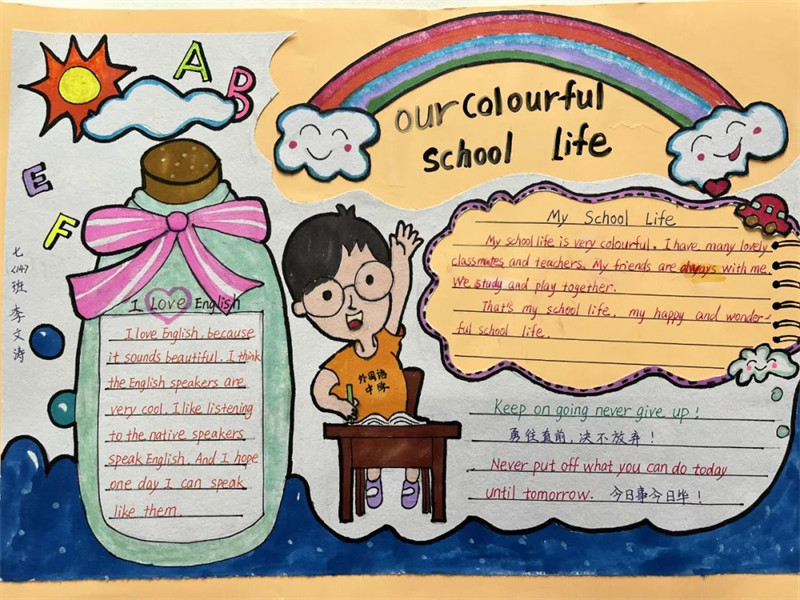 A B
E
F
our colourful
school life
七
(14)
班
李
文
涛
I Love English
I love English. because
it sounds beautiful. I think
the English speakers are
very cool. I like listening
to the native speakers
speak English. And I hope
one day I can speak
like them.
外国语
中学
My School Life
My school life is very colourful. I have many lovely
classmates and teachers. My friends are always with me.
We study and play together.
That's my school life, my happy and wonder-
ful school life.
Keep on going never give up!
勇往直前,决不放弃!
Never put off what you can do today
until tomorrow. 今日事今日毕!